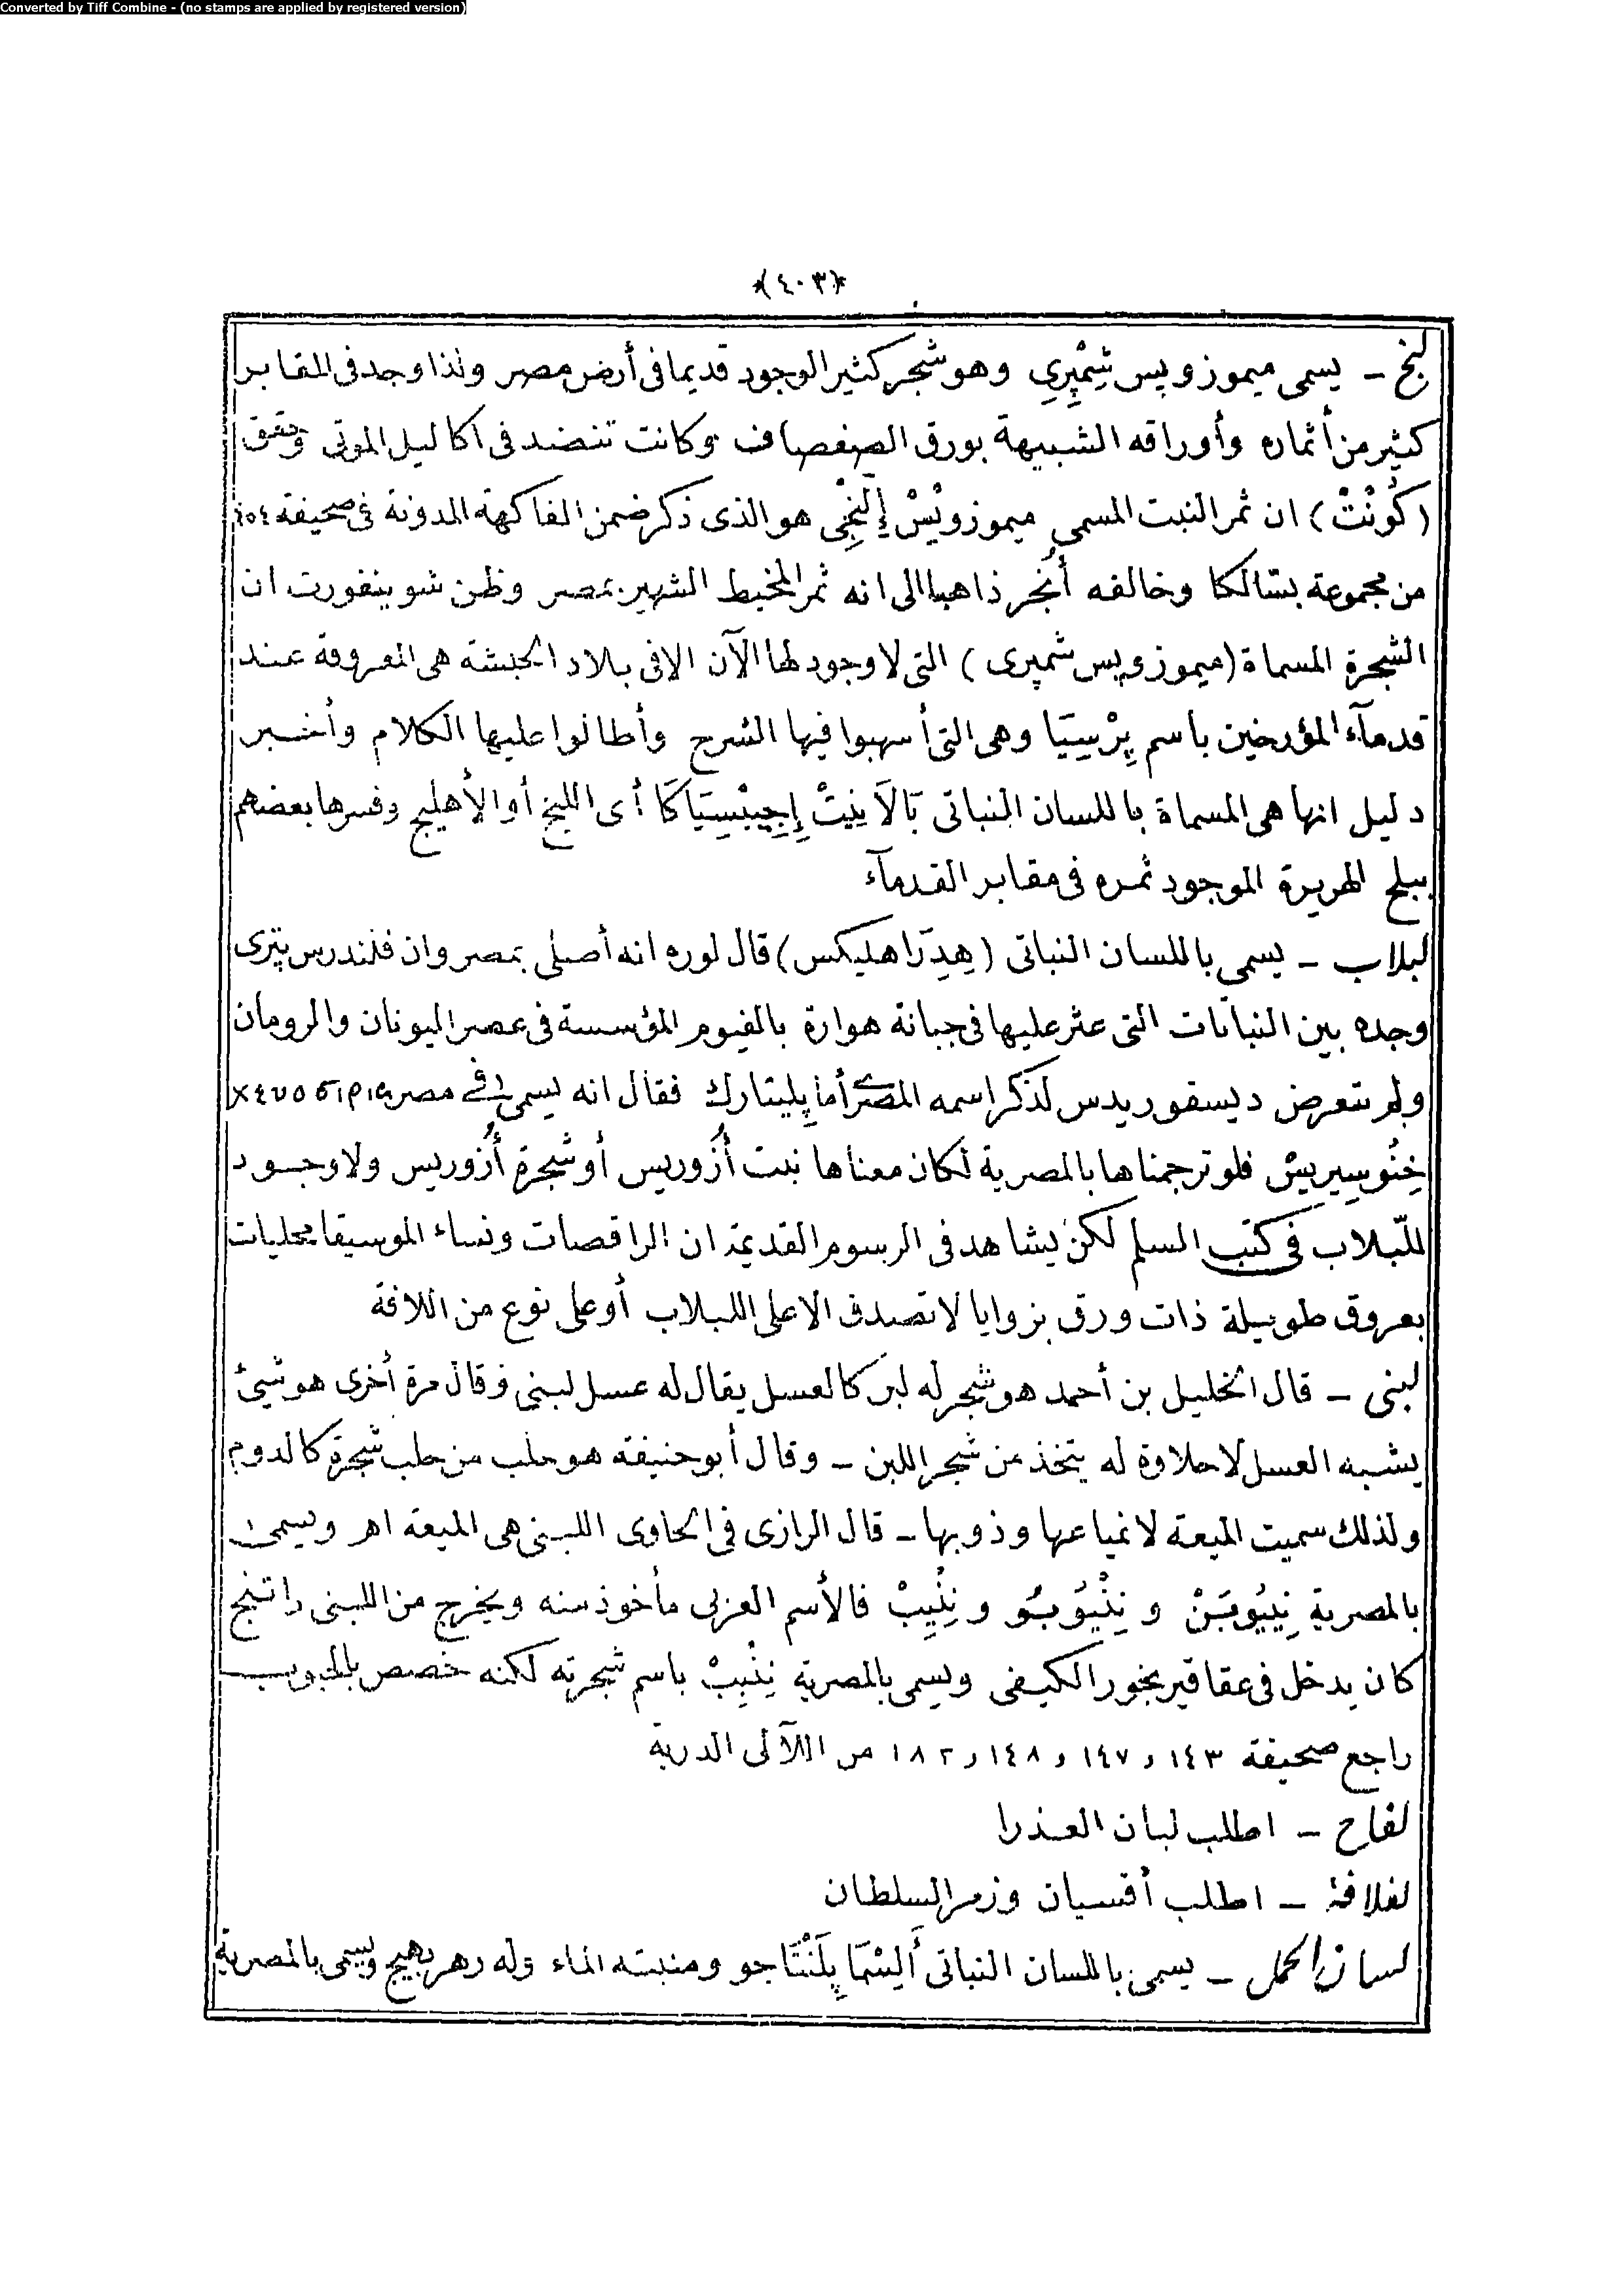 Converted by Tiff Combine - (no stamps are applied by registered version)
*(٤٠٣)*
لبخ ــ يسمى ميموزوپس شِمْپِرِى وهو شجر كثير الوجود قديما فى أرض مصر ولذا وجد فى المقابر
كثير من أثماره وأوراقه الشبيهة بورق الصفصاف وكانت تنضد فى اكاليل الموتى وحقق
(كُونْتْ) ان ثمر النبت المسمى ميموزوپْسْ إِلَنْجِى هو الذى ذكر ضمن الفاكهة المدونة فى صحيفة
من مجموعة بتالكا وخالفه أُنجر ذاهبا الى انه ثمر المخيط الشهير بمصر وظن شوينفورت ان
الشجرة المسماة (ميموزوپس شمپرى) التى لا وجود لها الآن الا فى بلاد الحبشة هى المعروفة عند
قدمآء المؤرخين باسم پِرْسِيَا وهى التى أسهبوا فيها الشرح وأطالوا عليها الكلام وأخبر
دليل انها هى المسماة باللسان النباتى بَالاَنِيتْ إِجِيبْسِيَاكَا أى اللبخ أو الأهليج وفسرها بعضهم
ببلح الهريرة الموجود ثمره فى مقابر القدمآء
لبلاب ــ يسمى باللسان النباتى (هِدِرَا هليكس) قال لوره انه أصلى بمصر وان فلندرس پترى
وجده بين النباتات التى عثر عليها فى جبانة هوارة بالفيوم المؤسسة فى عصر اليونان والرومان
ولم يتعرض ديسقوريدس لذكر اسمه المصرى أما پليتارك فقال انه يسمى فى مصر
خِنُوسِيرِيسْ فلو ترجمناها بالمصرية لكان معناها نبت أُزوريس أو شجرة أُزوريس ولا وجود
للّبلاب فى كتب السلم لكن يشاهد فى الرسوم القديمة ان الراقصات ونساء الموسيقا محليات
بعروق طويلة ذات ورق بزوايا لا تصدق الا على اللبلاب أو على نوع من اللافة
لبنى ــ قال الخليل بن أحمد هو شجر له لبن كالعسل يقال له عسل لبنى وقال مرة أخرى هو شئ
يشبه العسل لا حلاوة له يتخذ من شجر اللبن ــ وقال أبو حنيفة هو حلب من حلب شجرة كالدوم
ولذلك سميت الميعة لانمياعها وذوبها ــ قال الرازى فى الحاوى اللبنى هى الميعة اهر ويسمى
بالمصرية نِيبُوبَنْ و نِنْيُوبُو و نِنِيبْ فالأسم العربى مأخوذ منه ويخرج من اللبنى راتنج
كان يدخل فى عقاقير بخور الكيفى ويسمى بالمصرية نِنِيبْ باسم شجرته لكنه خصص بالحبوب
راجع صحيفة ١٤٣ و ١٤٧ و ١٤٨ و ١٨٢ من اللآلى الدرية
لفاح ــ اطلب لبان العذرا
لفلافة ــ اطلب أقسيان وزمر السلطان
لسان الحمل ــ يسمى باللسان النباتى أَلِيسْمَا پِلَنْتَاجو ومنبته الماء وله زهر بهيج ويسمى بالمصرية